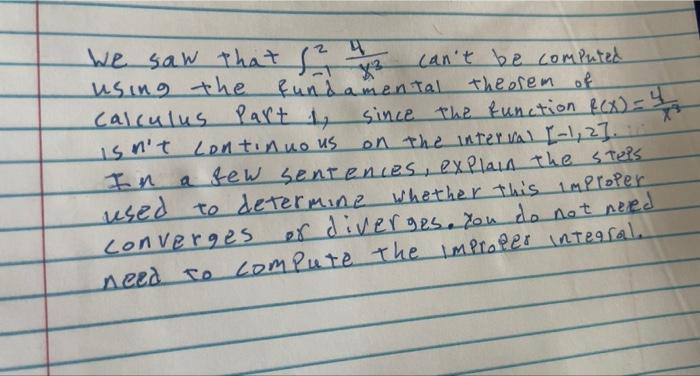 We saw that ∫₋₁² 4/x³ can't be computed
using the fundamental theorem of
calculus Part 1, since the function f(x) = 4/x³
isn't continuous on the interval [-1,2].
In a few sentences, explain the steps
used to determine whether this improper
converges or diverges. You do not need
need to compute the improper integral.